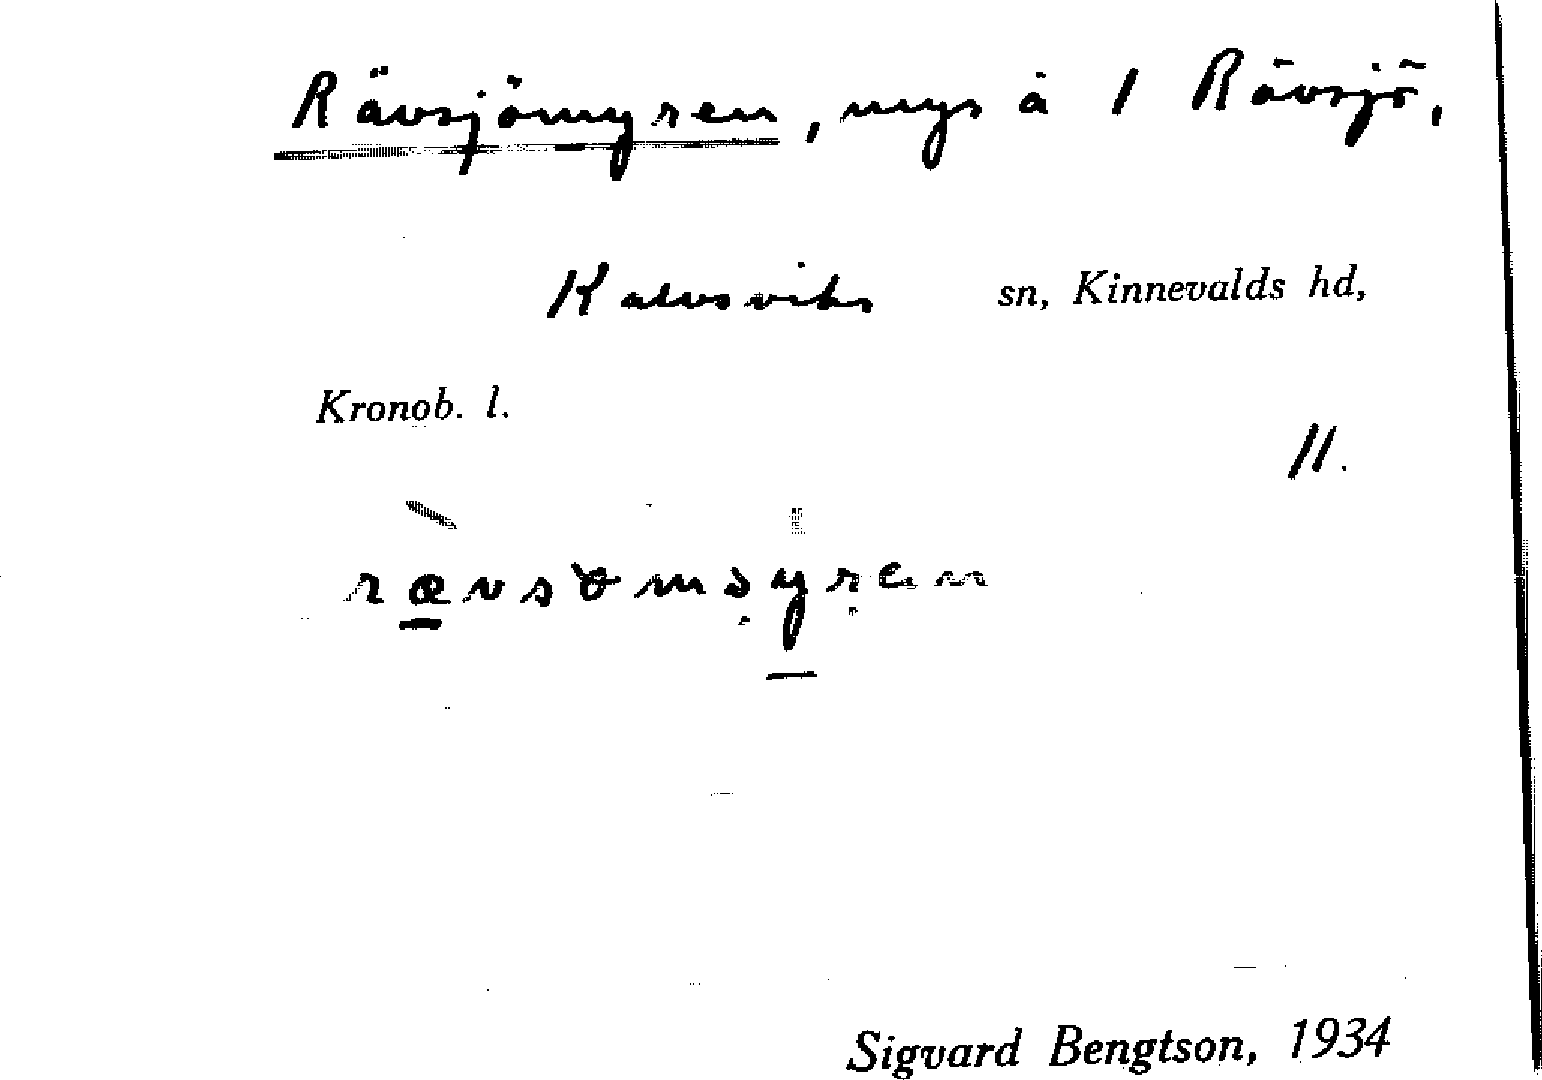 Rävsjömyren, myr å 1 Rävsjö,
Kalvsviks sn, Kinnevalds hd,
Kronob. l.
11.
Sigvard Bengtson, 1934